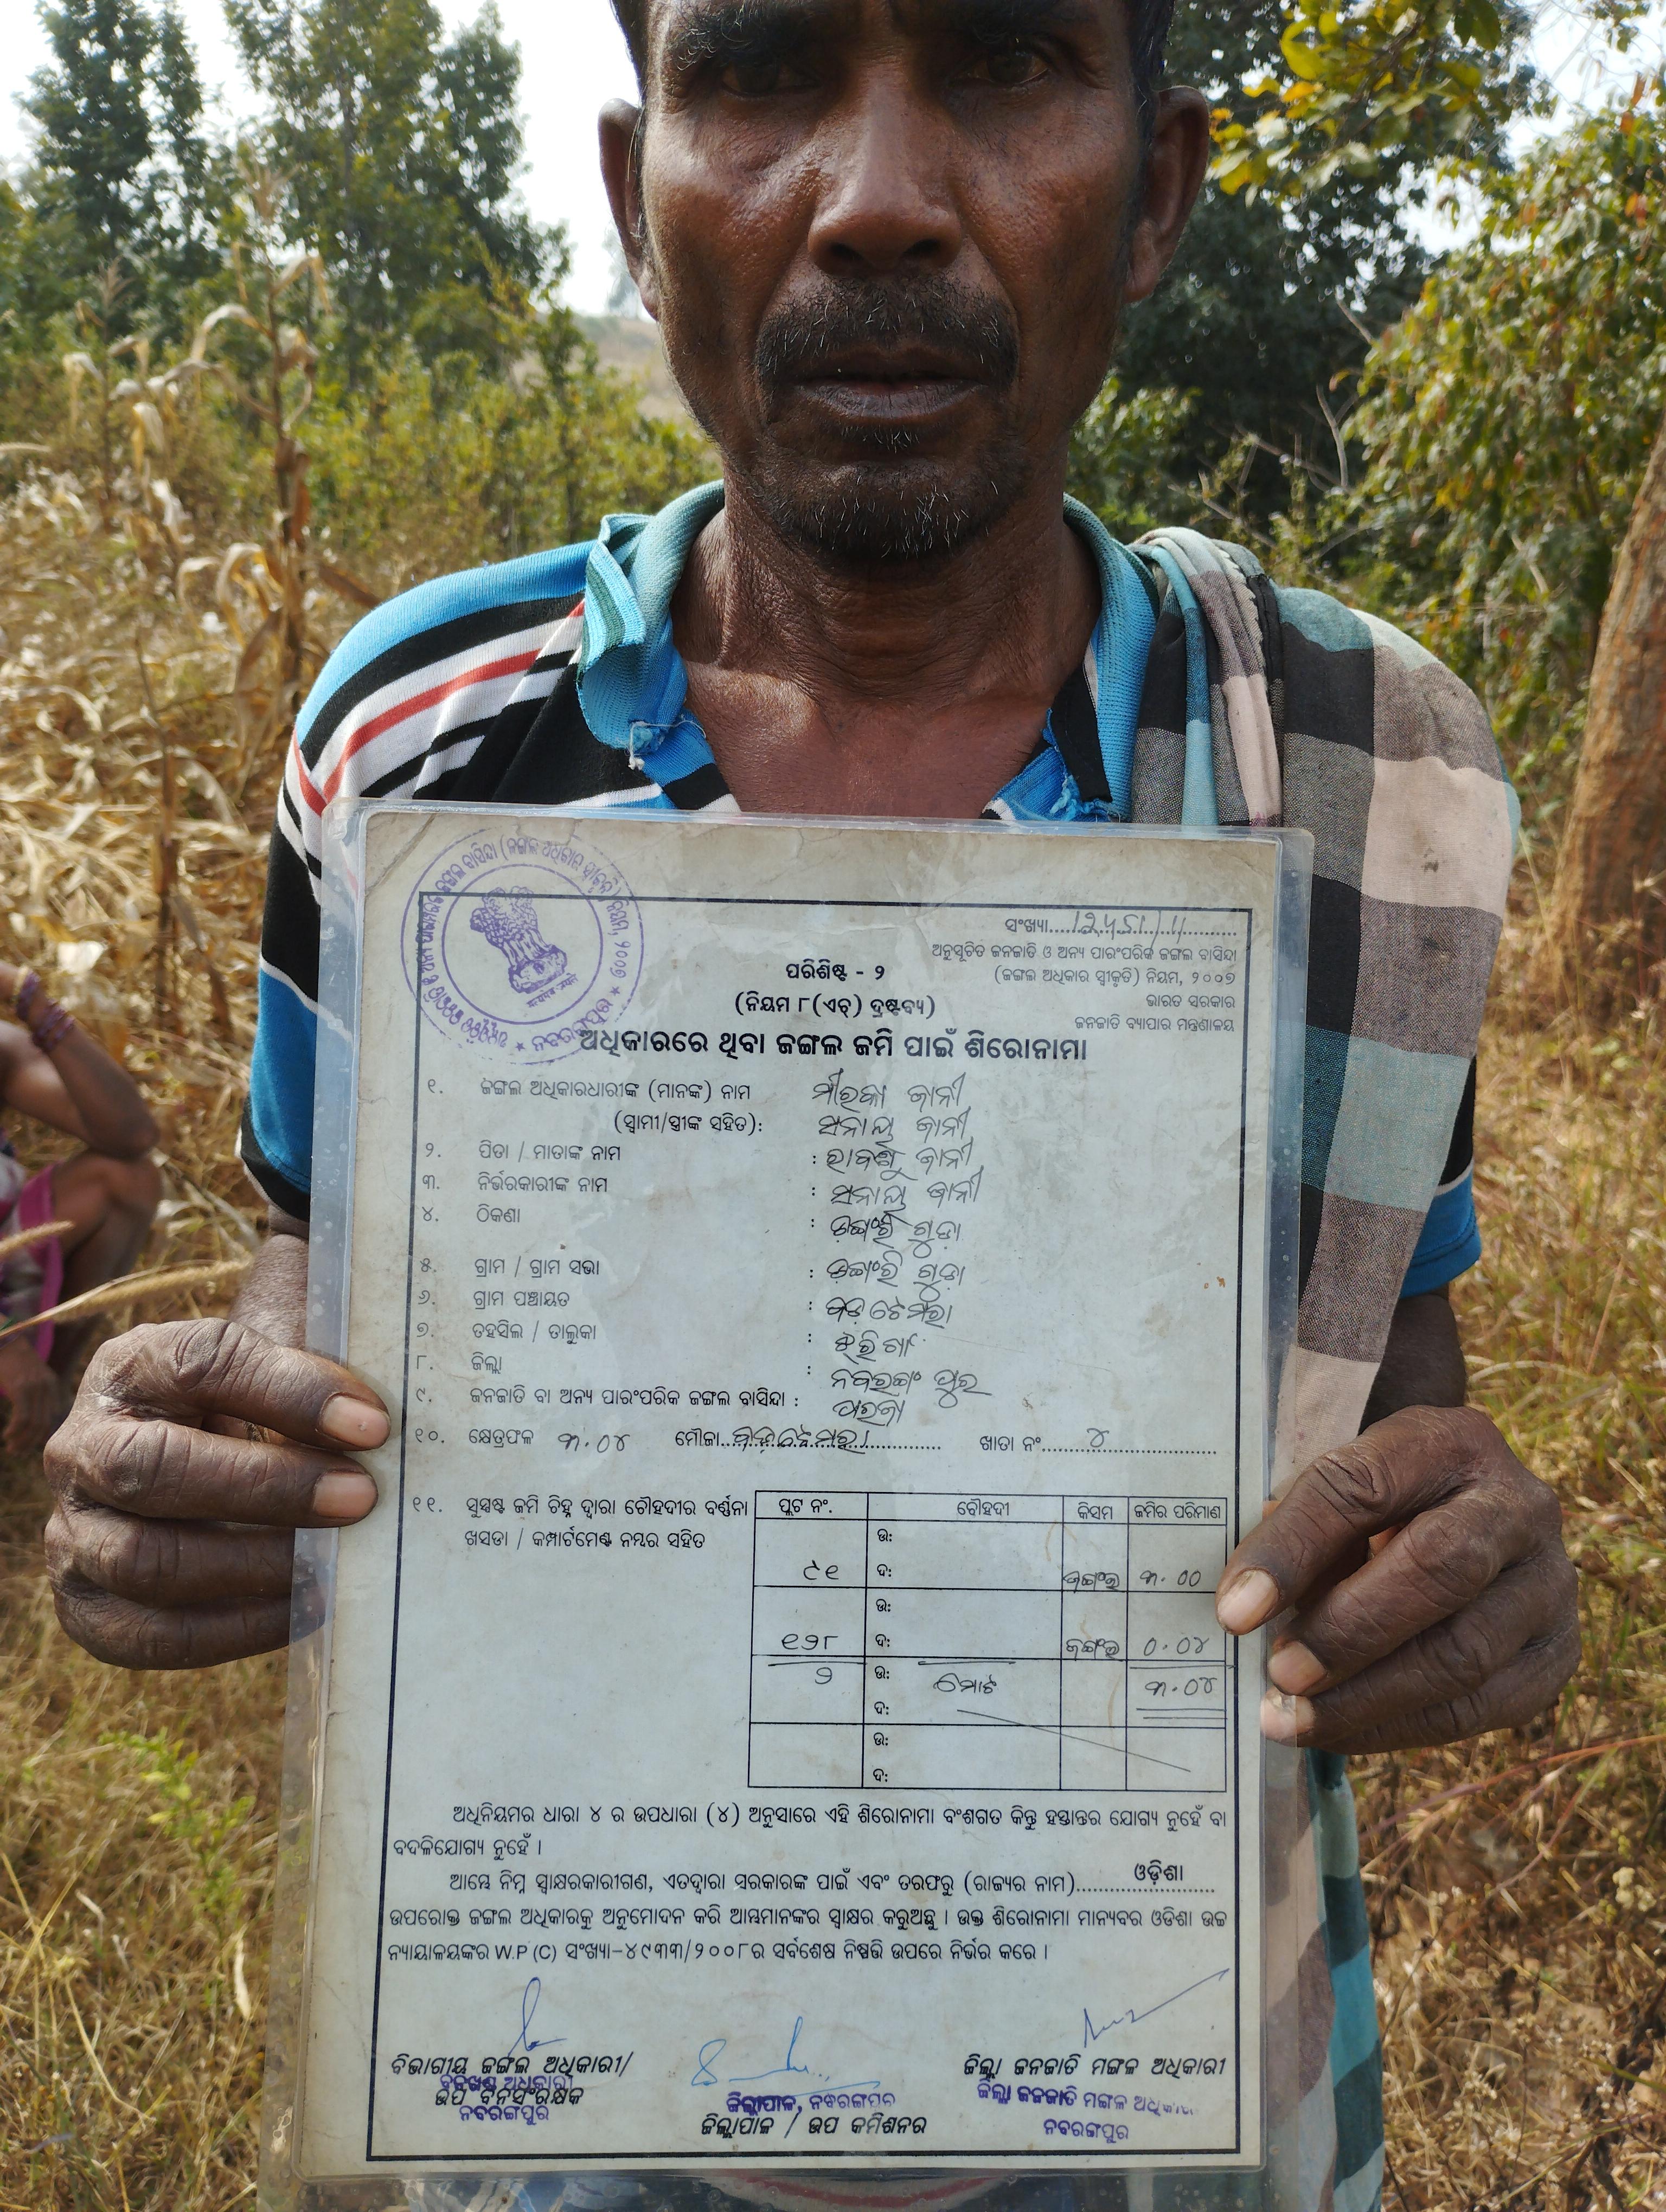 ସଂଖ୍ୟା
ଅନୁସୂଚିତ ଜନଜାତି ଓ ଅନ୍ୟ ପାରଂପରିକ ଜଙ୍ଗଲ ବାସିନ୍ଦା
(ଜଙ୍ଗଲ ଅଧିକାର ସ୍ୱୀକୃତି) ନିୟମ, ୨୦୦୭
ଭାରତ ସରକାର
ଜନଜାତି ବ୍ୟାପାର ମନ୍ତ୍ରଣାଳୟ
ପରିଶିଷ୍ଟ - ୨
(ନିୟମ ୮(ଏଚ୍) ଦ୍ରଷ୍ଟବ୍ୟ)
ଅଧିକାରରେ ଥିବା ଜଙ୍ଗଲ ଜମି ପାଇଁ ଶିରୋନାମା
୧. ଜଙ୍ଗଲ ଅଧିକାରଧାରୀଙ୍କ (ମାନଙ୍କ) ନାମ ମୀରଜା ଜାନୀ
(ସ୍ୱାମୀ/ସ୍ତ୍ରୀଙ୍କ ସହିତ): ଜାନୀ
୨. ପିତା / ମାତାଙ୍କ ନାମ : ଜାନୀ
୩. ନିର୍ଭରକାରୀଙ୍କ ନାମ : ଜାନୀ
୪. ଠିକଣା : ଡଙ୍ଗଂରି ଗୁଡ଼ା
୫. ଗ୍ରାମ / ଗ୍ରାମ ସଭା : ଡଙ୍ଗଂରି ଗୁଡ଼ା
୬. ଗ୍ରାମ ପଞ୍ଚାୟତ : ବଡ଼ ଟେମରା
୭. ତହସିଲ / ତାଲୁକା : ଝରିଗାଁ
୮. ଜିଲ୍ଲା : ନବରଙ୍ଗଂ ପୁର
୯. ଜନଜାତି ବା ଅନ୍ୟ ପାରଂପରିକ ଜଙ୍ଗଲ ବାସିନ୍ଦା : ପରଜା
୧୦. କ୍ଷେତ୍ରଫଳ ୩.୦୪ ମୌଜା ବଡ଼ଟେମରା ଖାତା ନଂ ୪
୧୧. ସୁସ୍ପଷ୍ଟ ଜମି ଚିହ୍ନ ଦ୍ୱାରା ଚୌହଦୀର ବର୍ଣ୍ଣନା
ଖସଡା / କମ୍ପାର୍ଟମେଣ୍ଟ ନମ୍ବର ସହିତ
ପ୍ଲଟ ନଂ. ଚୌହଦୀ କିସମ ଜମିର ପରିମାଣ
ଉ:
୯୧ ଦ: ଜଙ୍ଗଂଲ ୩.୦୦
ଉ:
୧୨୮ ଦ: ଜଙ୍ଗଂଲ ୦.୦୪
୨ ଉ: ମୋଟ ୩.୦୪
ଦ:
ଉ:
ଦ:
ଅଧିନିୟମର ଧାରା ୪ ର ଉପଧାରା (୪) ଅନୁସାରେ ଏହି ଶିରୋନାମା ବଂଶଗତ କିନ୍ତୁ ହସ୍ତାନ୍ତର ଯୋଗ୍ୟ ନୁହେଁ ବା
ବଦଳିଯୋଗ୍ୟ ନୁହେଁ ।
ଆମ୍ଭେ ନିମ୍ନ ସ୍ୱାକ୍ଷରକାରୀଗଣ, ଏତଦ୍ୱାରା ସରକାରଙ୍କ ପାଇଁ ଏବଂ ତରଫରୁ (ରାଜ୍ୟର ନାମ) ଓଡ଼ିଶା
ଉପରୋକ୍ତ ଜଙ୍ଗଲ ଅଧିକାରକୁ ଅନୁମୋଦନ କରି ଆମ୍ଭମାନଙ୍କର ସ୍ୱାକ୍ଷର କରୁଅଛୁ । ଉକ୍ତ ଶିରୋନାମା ମାନ୍ୟବର ଓଡିଶା ଉଚ୍ଚ
ନ୍ୟାୟାଳୟଙ୍କର W.P (C) ସଂଖ୍ୟା-୪୯୩୩/୨୦୦୮ର ସର୍ବଶେଷ ନିଷ୍ପତ୍ତି ଉପରେ ନିର୍ଭର କରେ ।
ବିଭାଗୀୟ ଜଙ୍ଗଲ ଅଧିକାରୀ/
ବନଖଣ୍ଡ ଅଧିକାରୀ
ଉପ ବନସଂରକ୍ଷକ
ନବରଙ୍ଗପୁର
ଜିଲ୍ଲାପାଳ, ନବରଙ୍ଗପୁର
ଜିଲ୍ଲାପାଳ / ଉପ କମିଶନର
ଜିଲ୍ଲା ଜନଜାତି ମଙ୍ଗଳ ଅଧିକାରୀ
ଜିଲ୍ଲା ଜନଜାତି ମଙ୍ଗଳ ଅଧିକାରୀ
ନବରଙ୍ଗପୁର